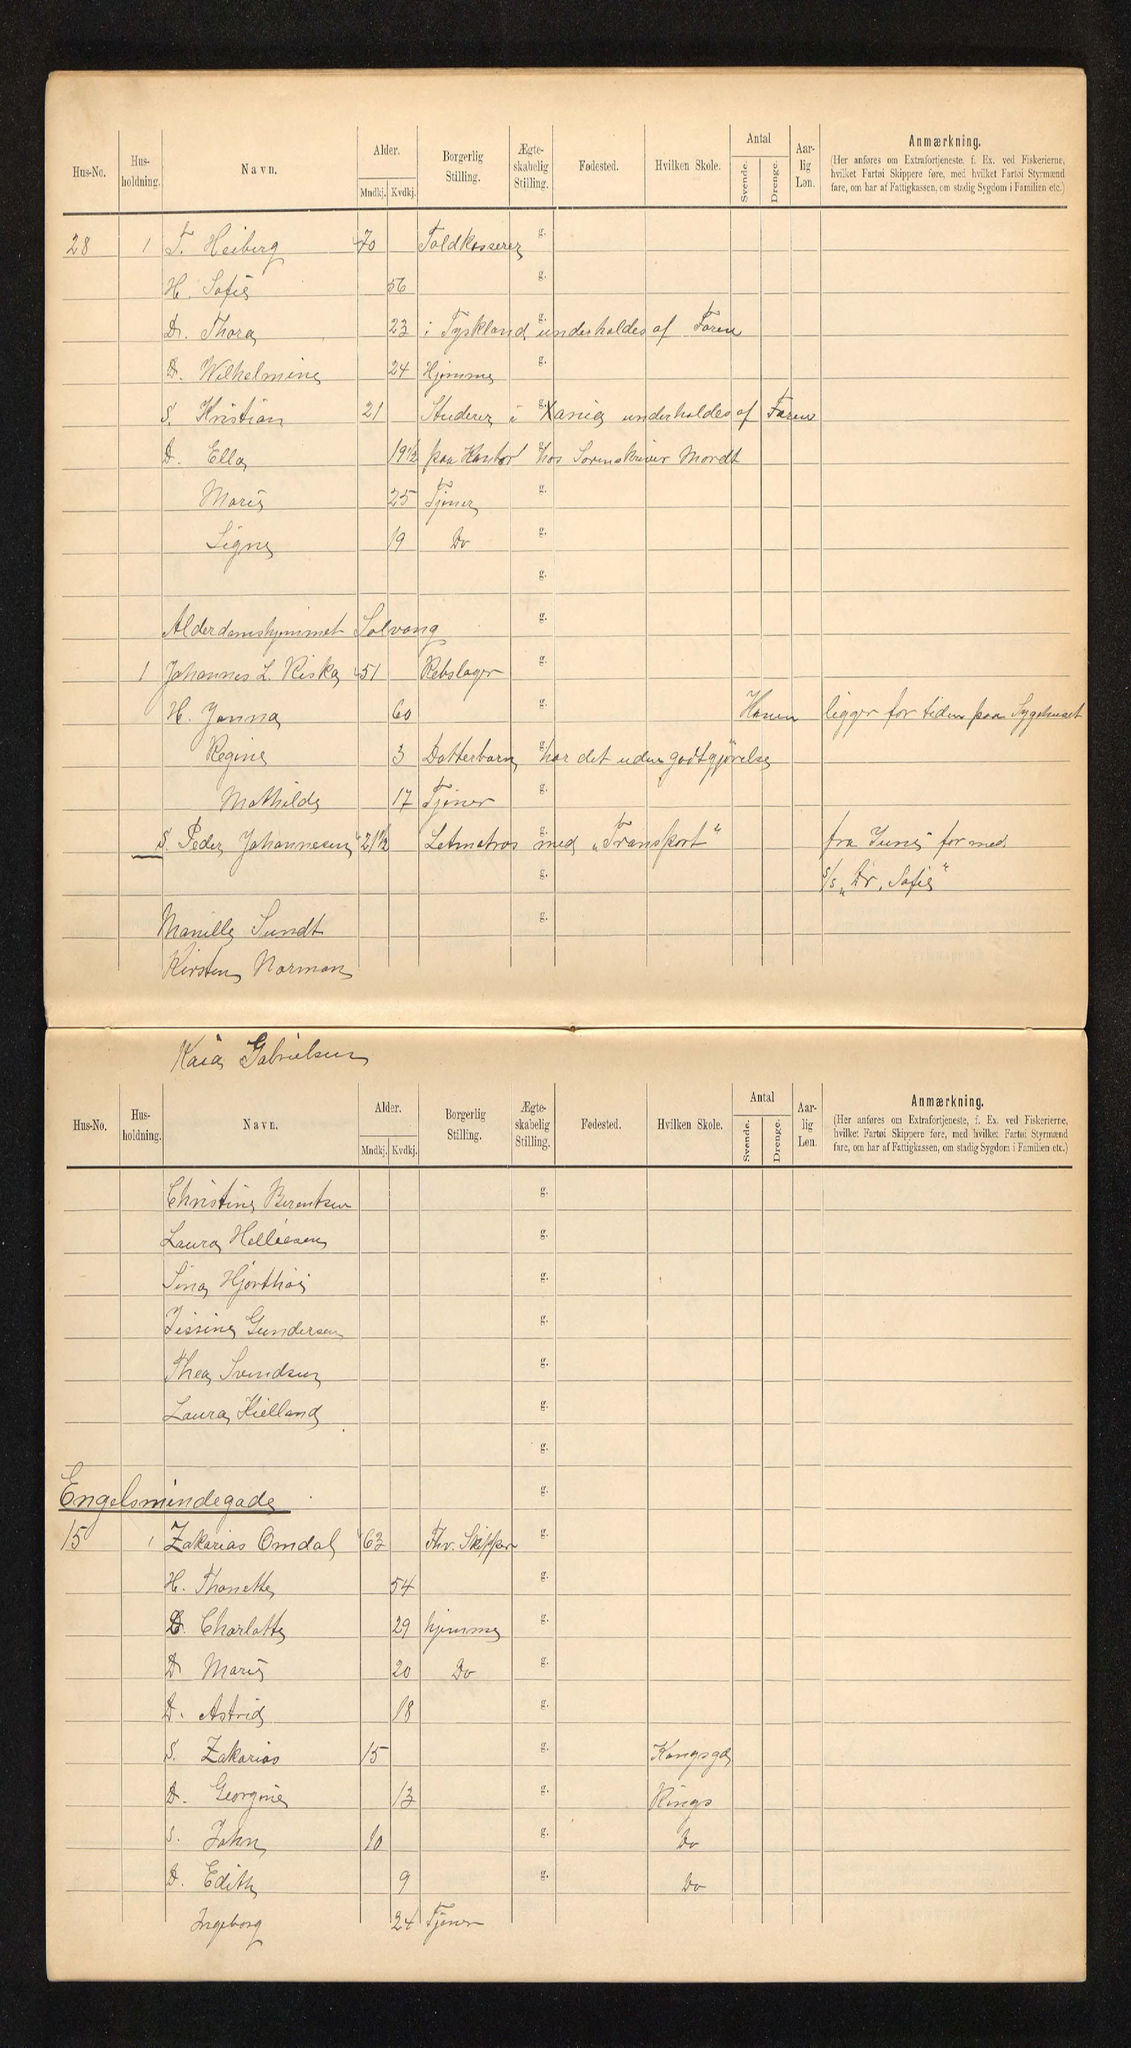 Hus-No. Hus-holdning. Navn. Alder. Mndkj. Kvdkj. Borgerlig Stilling. Ægte-skabelig Stilling. Fødested. Hvilken Skole. Antal Svende. Drenge. Aar-lig Løn. Anmærkning.
(Her anføres om Extrafortjeneste, f. Ex. ved Fiskerierne,
hvilket Fartøi Skippere føre, med hvilket Fartøi Styrmænd
fare, om har af Fattigkassen, om stadig Sygdom i Familien etc.)
28 1 T. Heiberg 70 Toldkasserer g.
H. Sofie 56 g.
D. Thora 23 i Tyskland underholdes af Faren g.
D. Wilhelmine 24 Hjemme g.
S. Kristian 21 Studerer i Xania underholdes af Faren g.
D. Ella 19½ paa Kontor hos Sorenskriver Mordt g.
Marie 25 Tjener g.
Signe 19 Do g.
g.
Alderdomshjemmet Solvang g.
1 Johannes L. Riska 51 Rebslager g.
H. Janna 60 g. Konen ligger for tiden paa Sygehuset
Regine 3 Datterbarn har det uden godtgjørelse g.
Mathilde 17 Tjener g.
S. Peder Johannesen 21½ Letmatros med "Transport" g. fra Juni for med
g. s/s "Dr. Sofie"
Manille Sundt g.
Kirsten Norman
Kaia Gabrielsen
Hus-No. Hus-holdning. Navn. Alder. Mndkj. Kvdkj. Borgerlig Stilling. Ægte-skabelig Stilling. Fødested. Hvilken Skole. Antal Svende. Drenge. Aar-lig Løn. Anmærkning.
(Her anføres om Extrafortjeneste, f. Ex. ved Fiskerierne,
hvilket Fartøi Skippere føre, med hvilket Fartøi Styrmænd
fare, om har af Fattigkassen, om stadig Sygdom i Familien etc.)
Christine Berentsen g.
Laura Helliesen g.
Sina Hjorthøi g.
Jissine Gundersen g.
Thea Svendsen g.
Laura Kielland g.
g.
Engelsmindegade g.
15 1 Zakarias Omdal 63 Fhv. Skipper g.
H. Thonette 54 g.
D. Charlotte 29 hjemme g.
D Marie 20 Do g.
D. Astrid 18 g.
S. Zakarias 15 g. Kongsgd
D. Georgine 13 g. Kings
S. John 10 g. Do
D. Edith 9 g. Do
Ingeborg 24 Tjener